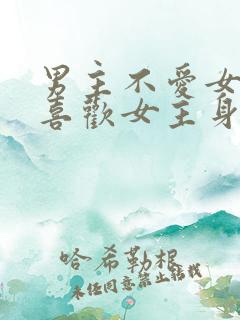 男主不愛女
喜歡女主身
哈希勒根
未经同意禁止转载